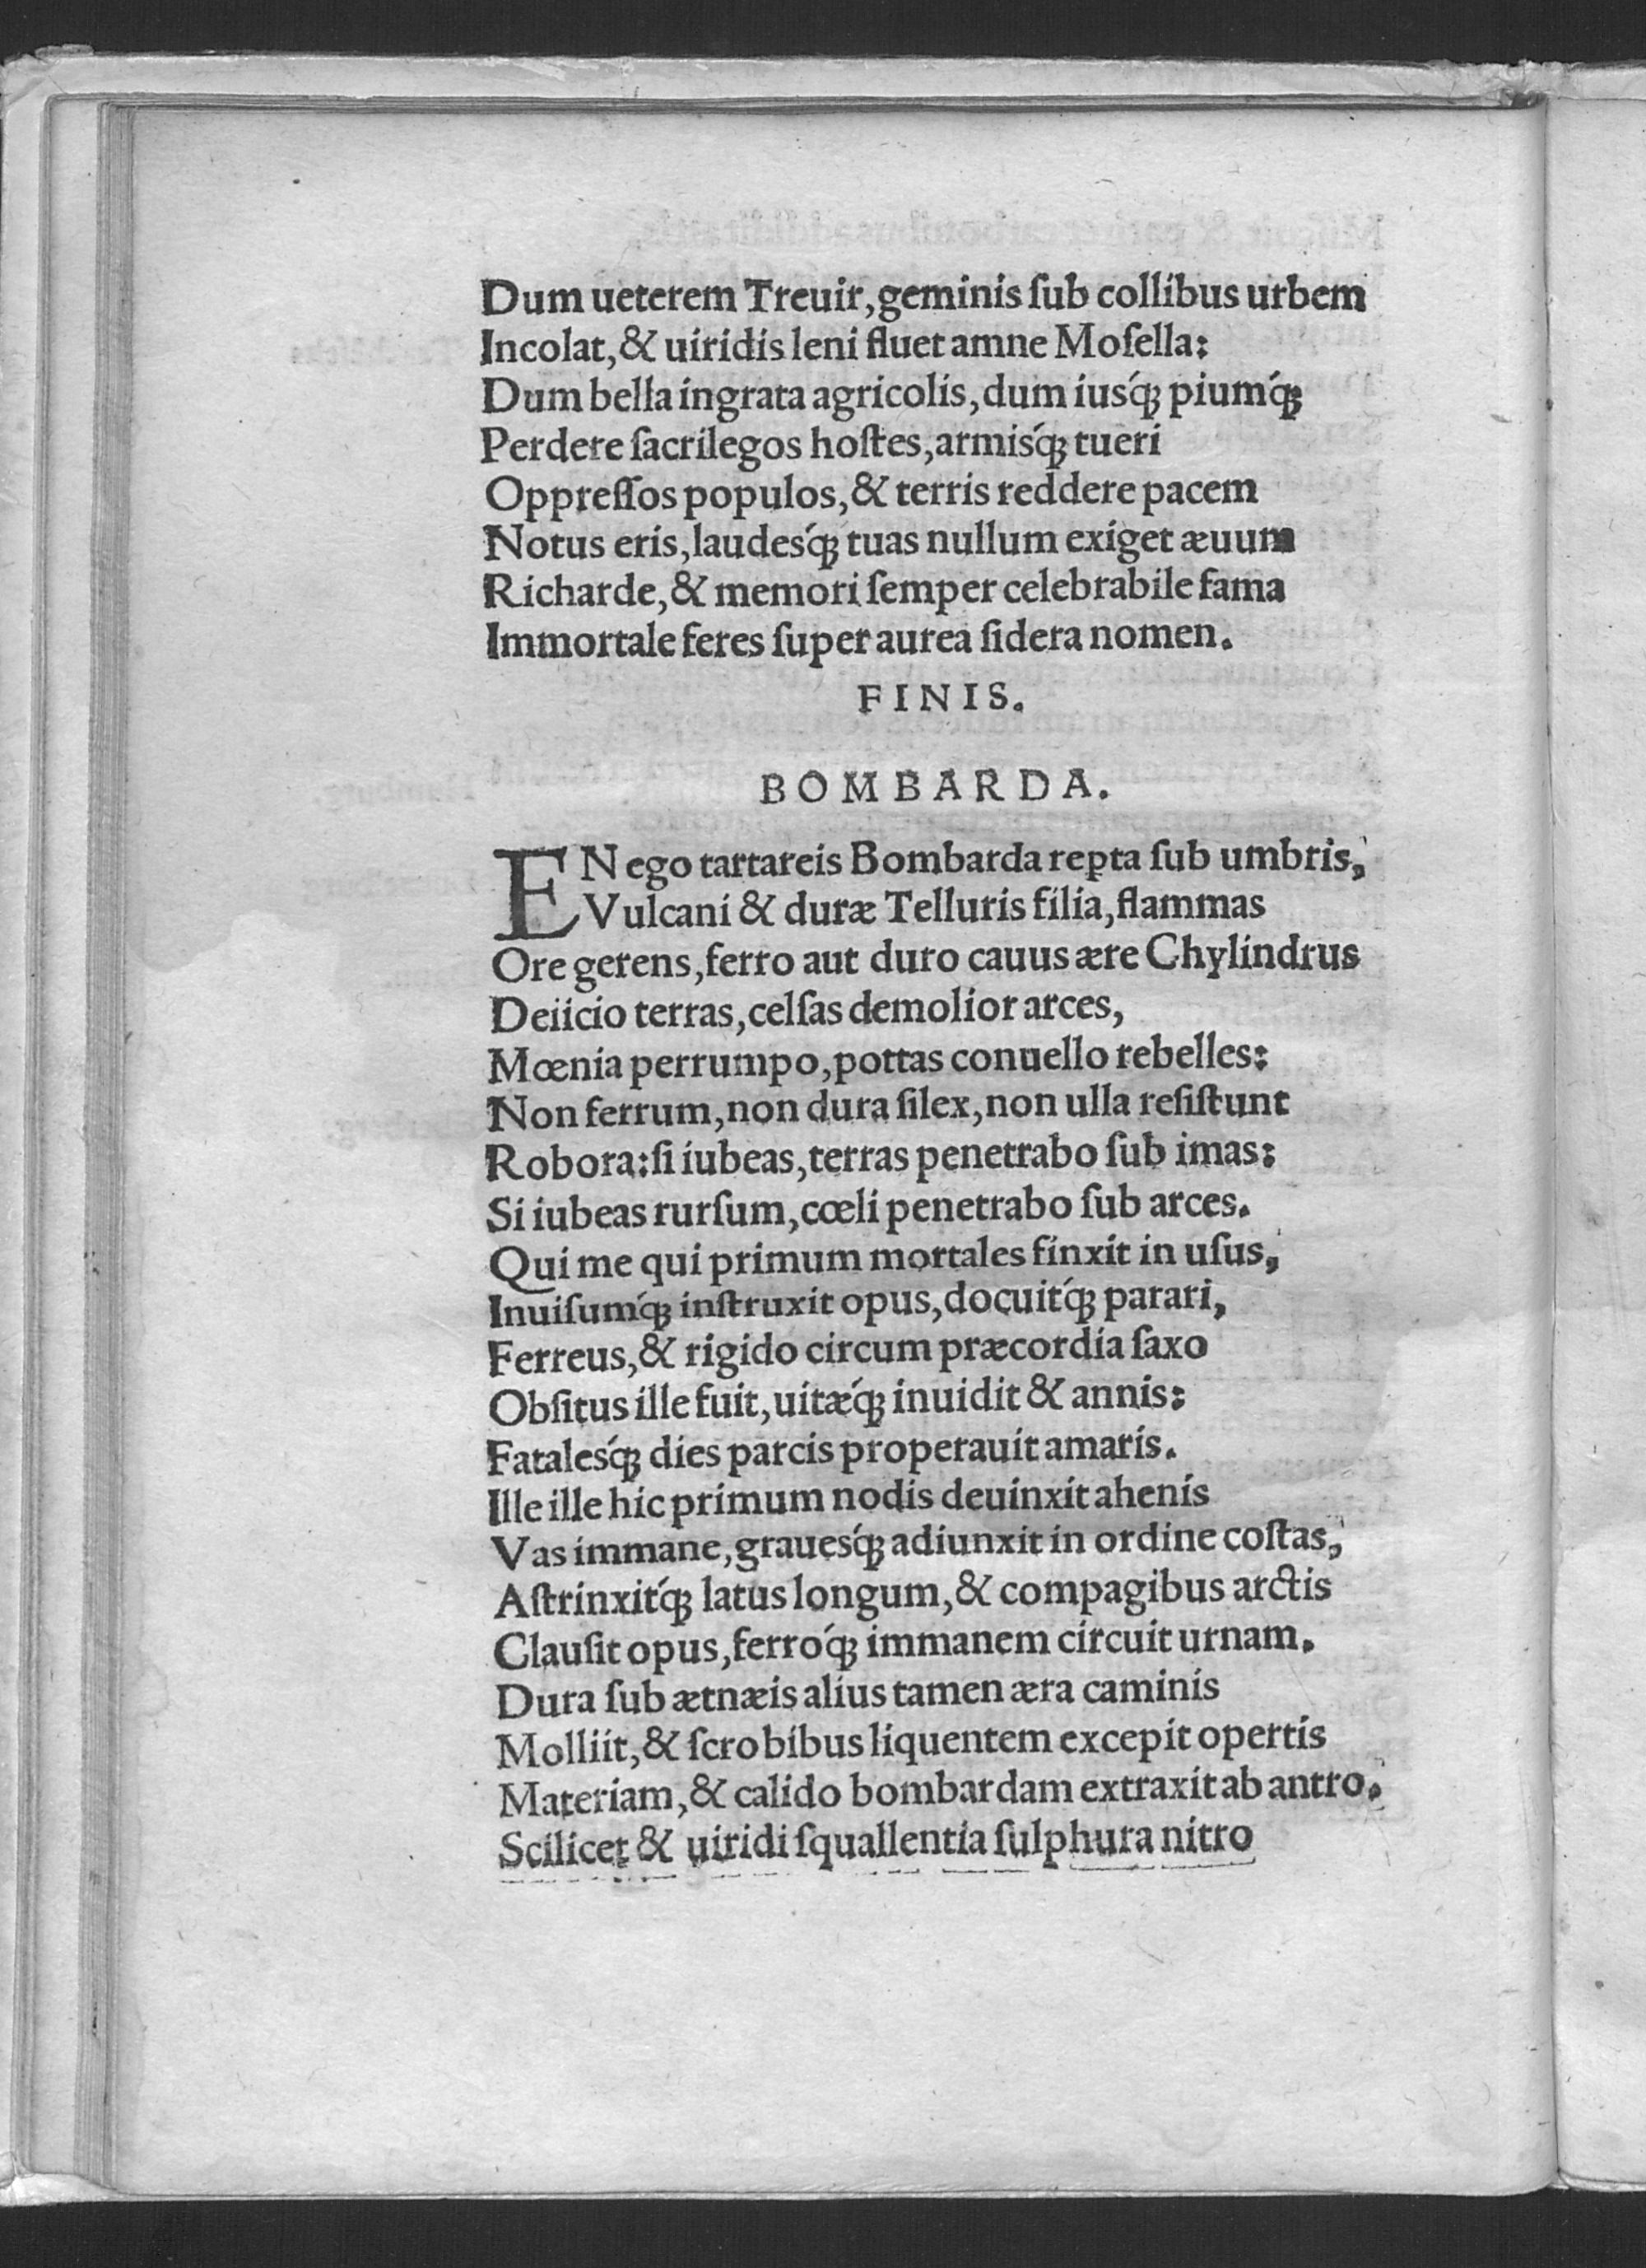 Dum ueterem Treuir, geminis ſub collibus urbem
Incolat, & uiridis leni fluet amne Moſella:
Dum bella ingrata agricolis, dum iusq́ꝫ piumq́ꝫ
Perdere ſacrilegos hoſtes, armisq́ꝫ tueri
Oppreſſos populos, & terris reddere pacem
Notus eris, laudesq́ꝫ tuas nullum exiget æuum
Richarde, & memori ſemper celebrabile fama
Immortale feres ſuper aurea ſidera nomen.
FINIS.
BOMBARDA.
EN ego tartareis Bombarda repta ſub umbris,
Vulcani & duræ Telluris filia, flammas
Ore gerens, ferro aut duro cauus ære Chylindrus
Deiicio terras, celſas demolior arces,
Mœnia perrumpo, pottas conuello rebelles:
Non ferrum, non dura ſilex, non ulla reſiſtunt
Robora: ſi iubeas, terras penetrabo ſub imas:
Si iubeas rurſum, cœli penetrabo ſub arces.
Qui me qui primum mortales finxit in uſus,
Inuiſumq́ꝫ inſtruxit opus, docuitq́ꝫ parari,
Ferreus, & rigido circum præcordia ſaxo
Obſitus ille fuit, uitæq́ꝫ inuidit & annis:
Fatalesq́ꝫ dies parcis properauit amaris.
Ille ille hic primum nodis deuinxit ahenis
Vas immane, grauesq́ꝫ adiunxit in ordine coſtas,
Aſtrinxitq́ꝫ latus longum, & compagibus arctis
Clauſit opus, ferroq́ꝫ immanem circuit urnam.
Dura ſub ætnæis alius tamen æra caminis
Molliit, & ſcrobibus liquentem excepit opertis
Materiam, & calido bombardam extraxit ab antro.
Scilicet & uiridi ſquallentia ſulphura nitro